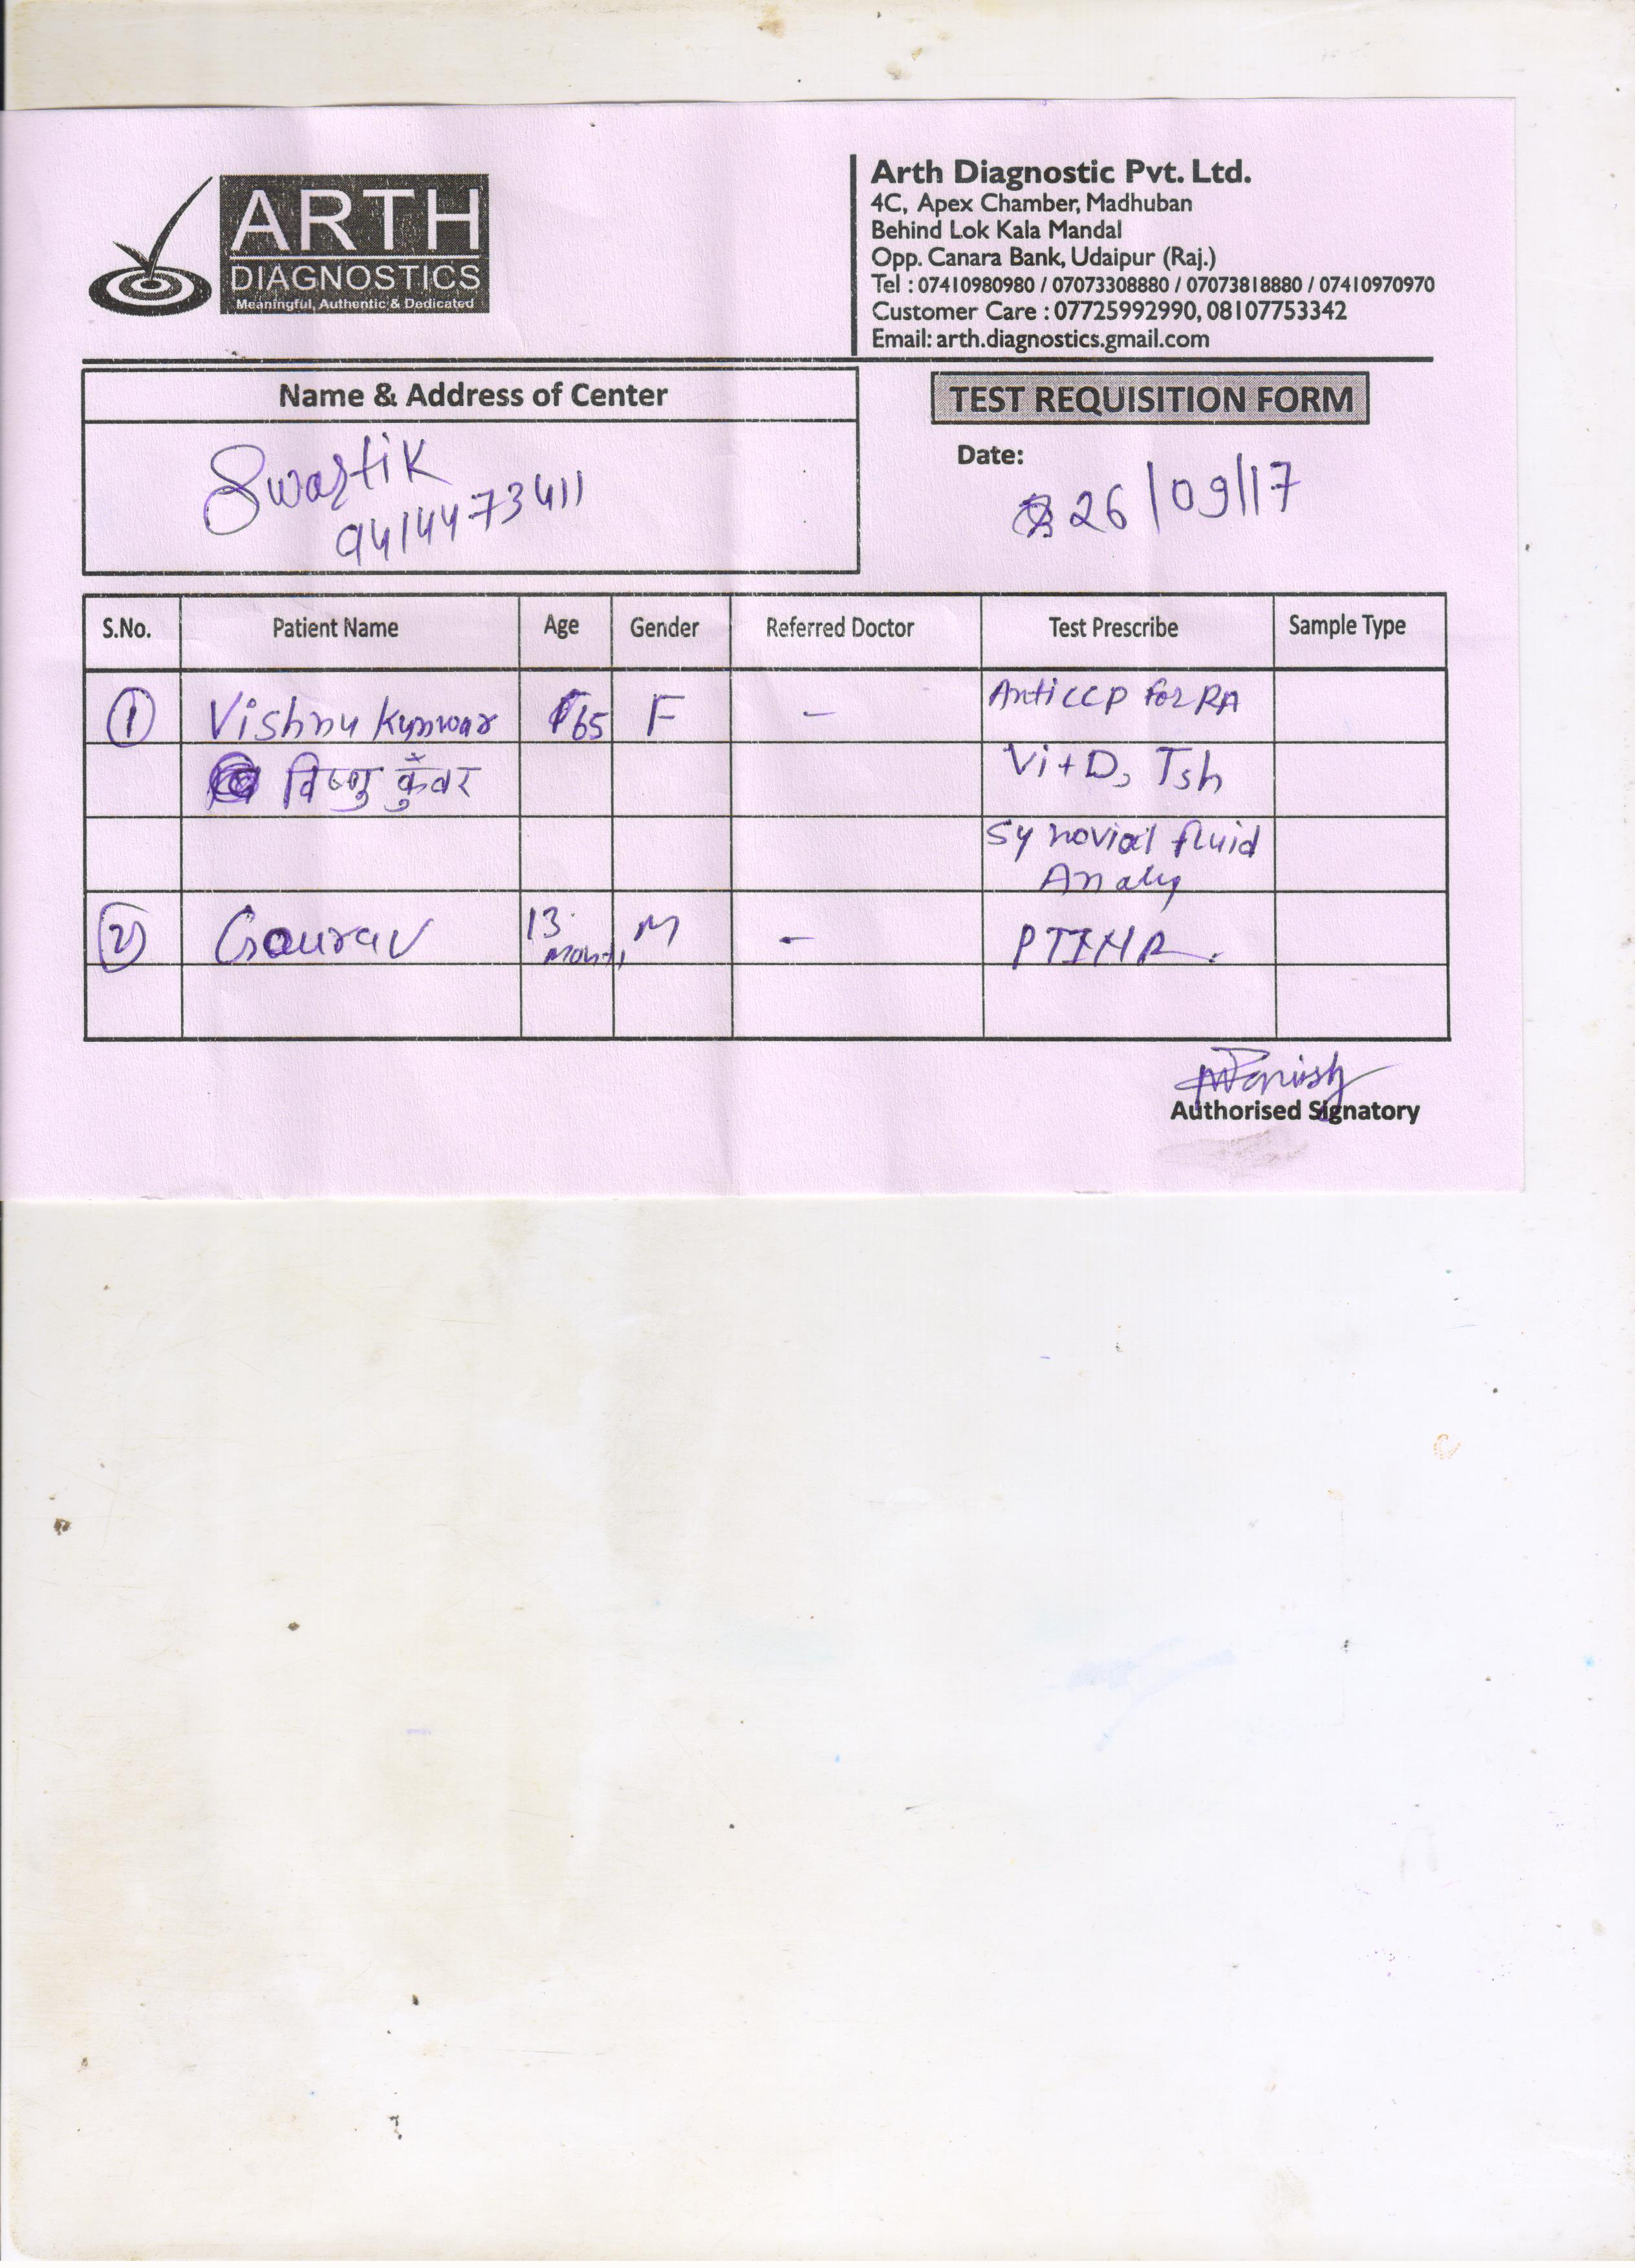 ARTH
DIAGNOSTICS
Meaningful, Authentic & Dedicated
Arth Diagnostic Pvt. Ltd.
4C, Apex Chamber, Madhuban
Behind Lok Kala Mandal
Opp. Canara Bank, Udaipur (Raj.)
Tel : 07410980980 / 07073308880 / 07073818880 / 07410970970
Customer Care : 07725992990, 08107753342
Email: arth.diagnostics.gmail.com
Name & Address of Center
Swastik
9414473411
TEST REQUISITION FORM
Date:
26/09/17
S.No. Patient Name Age Gender Referred Doctor Test Prescribe Sample Type
1 Vishnu Kunwar 65 F - Anti CCP for RA
विष्णु कुँवर Vit D3 Tsh
Synovial fluid
Analy
2 Gourav 13 M - PTINR.
Month
Authorised Signatory